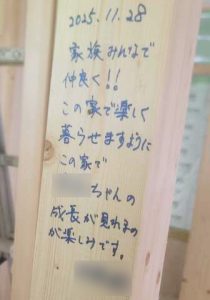 2025.11.28
家族みんなで
仲良く!!
この家で楽しく
暮らせますように
この家で
ちゃんの
成長が見れるの
が楽しみです。